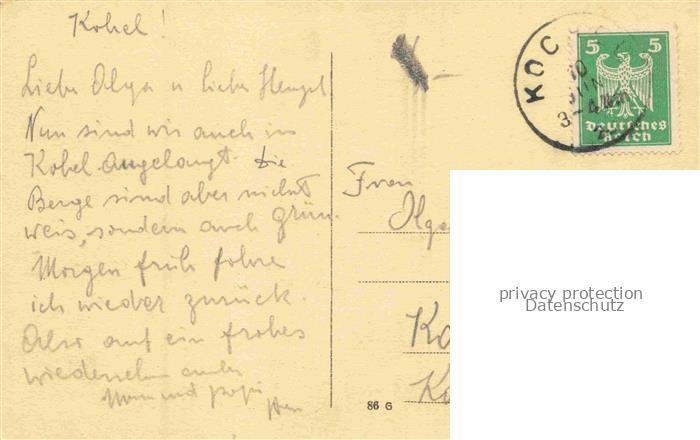 Kobel!
Liebe Olga u lieber
Nun sind wir auch in
Kobel angelangt. Die
Berge sind aber nicht
weis, sondern auch Grün.
Morgen früh fahre
ich wieder zurück.
Also auf ein frohes
wiedersehn
Frau
Olga
KOC
10
JUN
3-4
5 5
Deutsches
Reich
86 G
privacy protection
Datenschutz